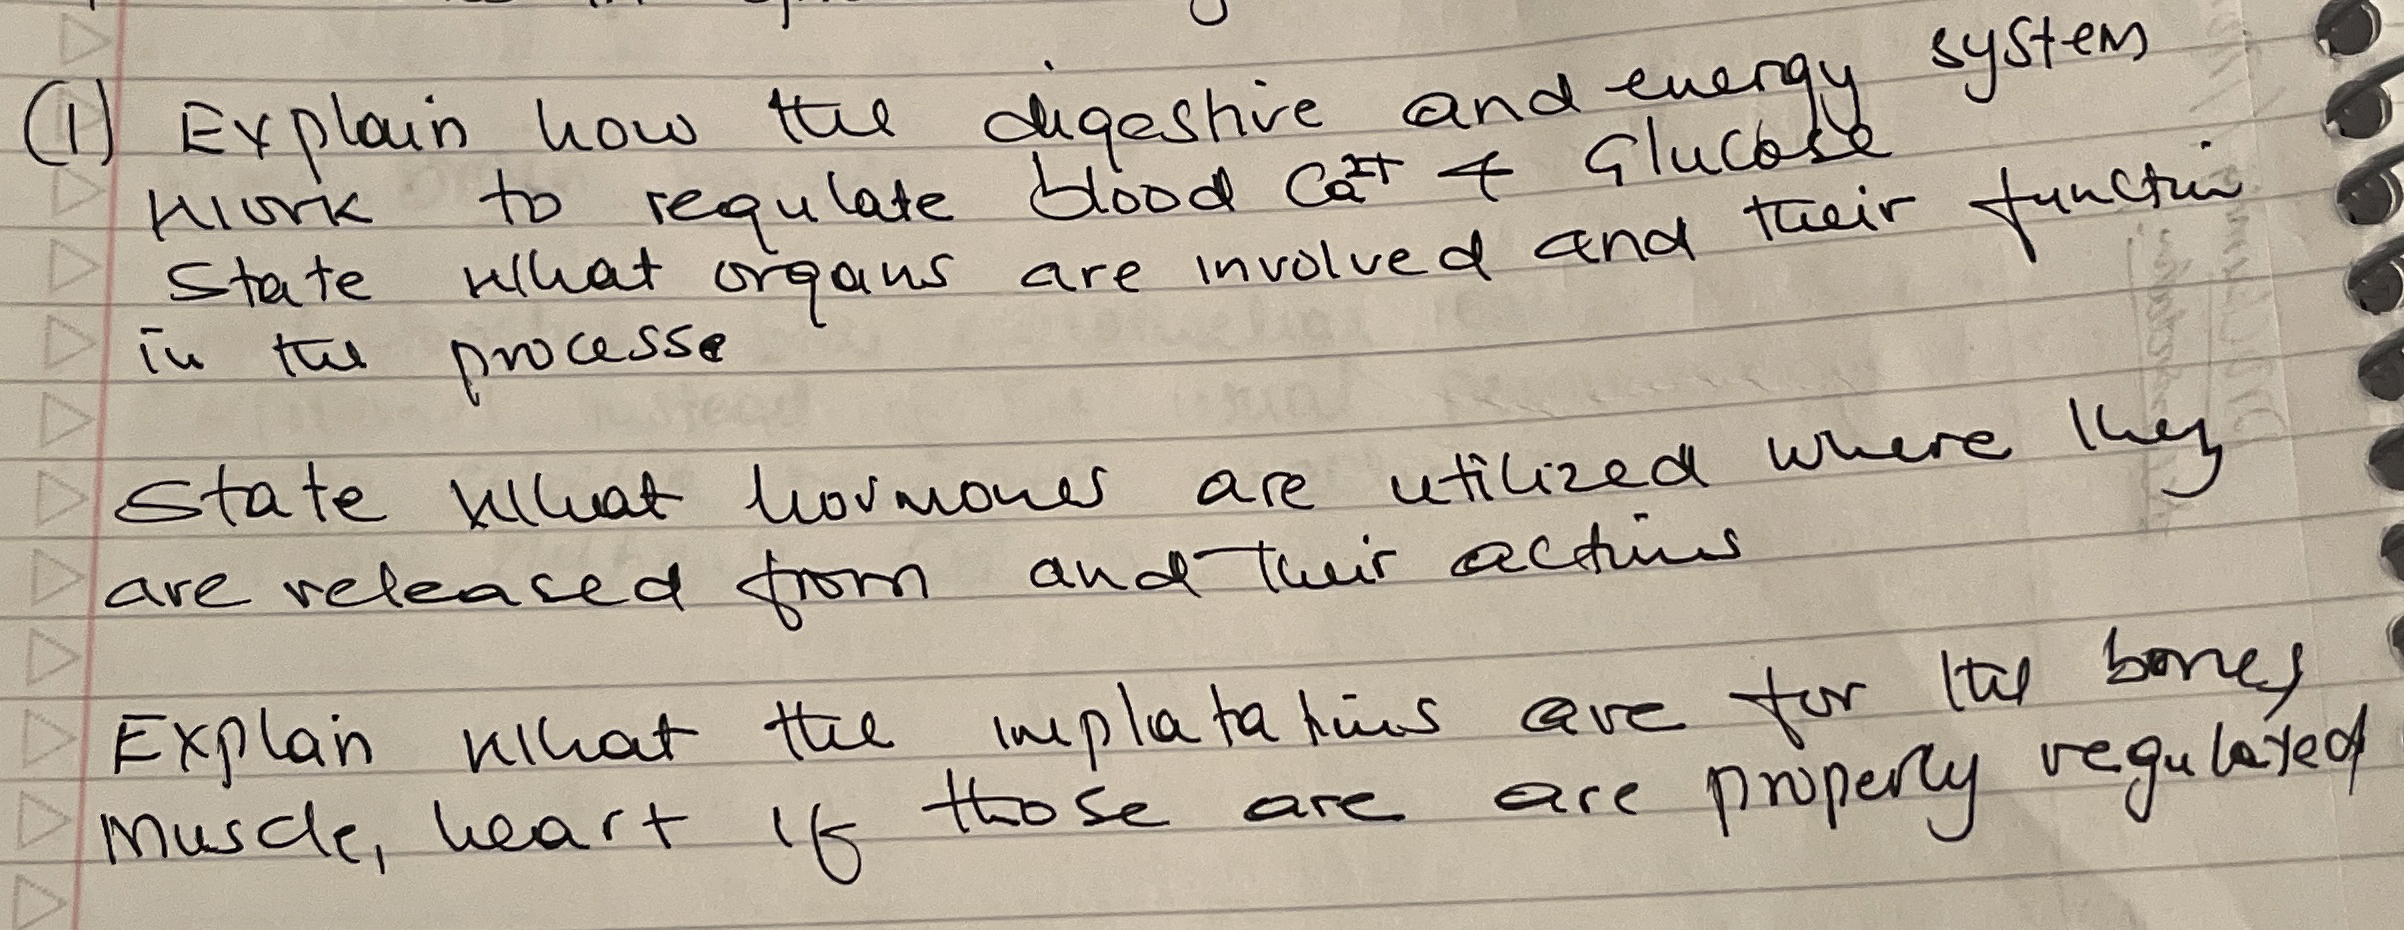 (1) Explain how the digestive and energy system
work to regulate blood Ca2+ & Glucose
State what organs are involved and their function
in the processe
State what hormones are utilized where they
are released from and their actions
Explain what the implatations are for the bones
Muscle, heart if those are are properly regulated